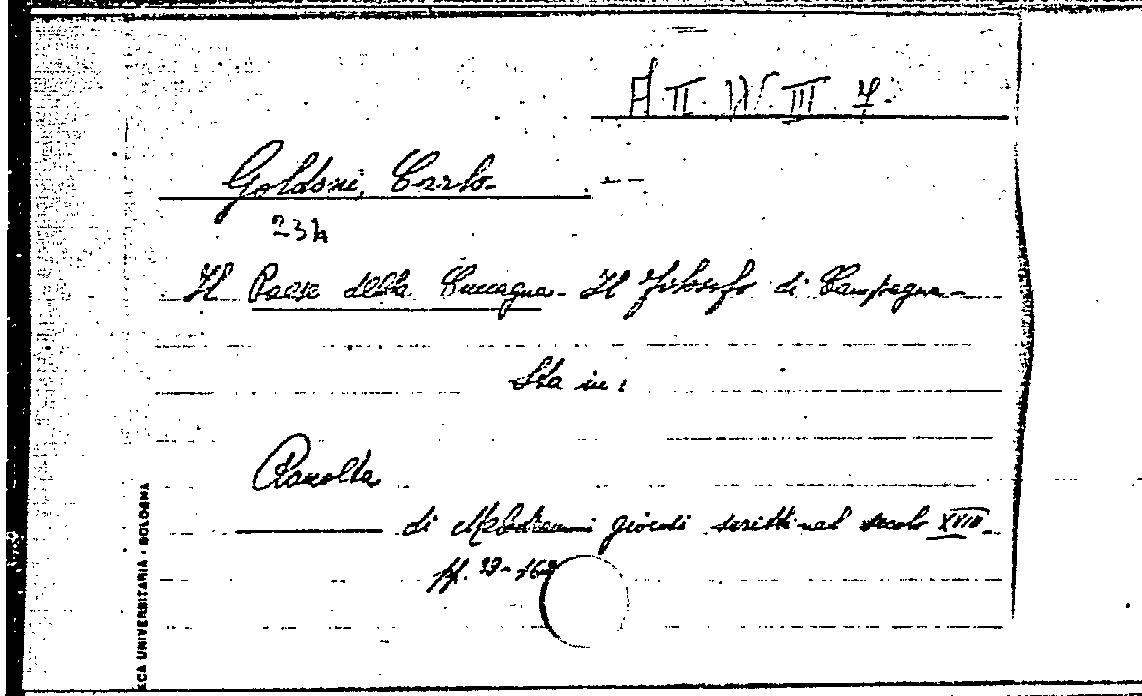 A. II. W. III. 7.
Goldoni, Carlo.
234
Il Paese della Cuccagna - Il Filosofo di Campagna -
Sta in:
Raccolta
di Melodrammi giocosi scritti nel secolo XVIII.
pp.
ECA UNIVERSITARIA · BOLOGNA